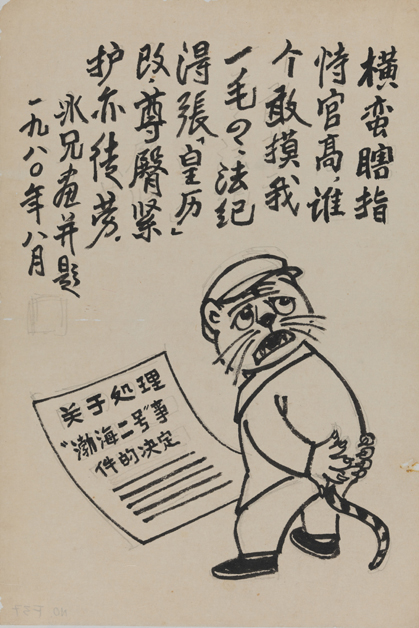 横蛮瞎指
恃官高,谁
个敢摸我
一毛 法纪
得張「皇历」
改,尊臀紧
护亦徒劳.
冰兄画并题
一九八〇年八月
关于处理
"渤海二号"事
件的决定